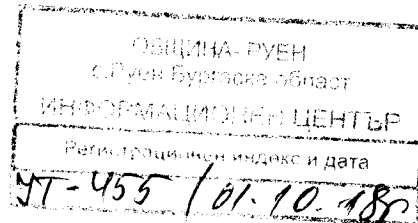 ОБЩИНА- РУЕН
с.Руен Бургаска област
ИНФОРМАЦИОНЕН ЦЕНТЪР
Регистрационен индекс и дата
УТ-455 / 01.10.18г